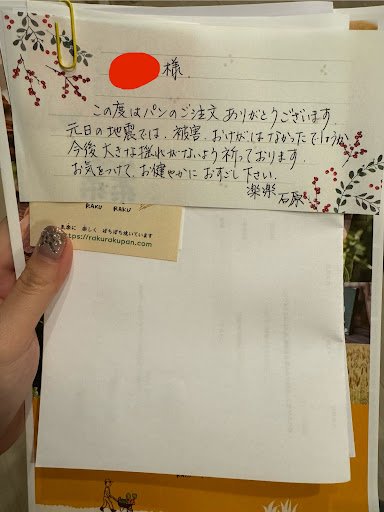 様
この度はパンのご注文ありがとうございます。
元旦の地震では、被害、おけがはなかったでしょうか
今後大きな揺れがないよう祈っております。
お気をつけて、お健やかにお過ごし下さい。
楽楽 石原
RAKU RAKU
気楽に 楽しく ぼちぼち焼いています
https://rakurakupan.com